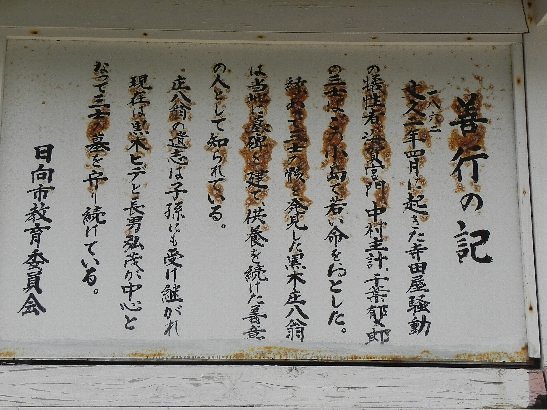 善行の記
一八六二
七人二年四月に起きた寺田屋騒動
の犠牲者海賀宮門、中村主計、千葉郁太郎
の三士はこの小島で若い命をおとした。
三士の 発見した黒木庄八翁
は当地に墓碑を建て供養を続けた善意
の人として知られている。
庄八翁の遺志は子孫にも受け継がれ
現在は黒木ヒデと長男弘茂が中心と
なって三士の墓を守り続けている。
日向市教育委員会